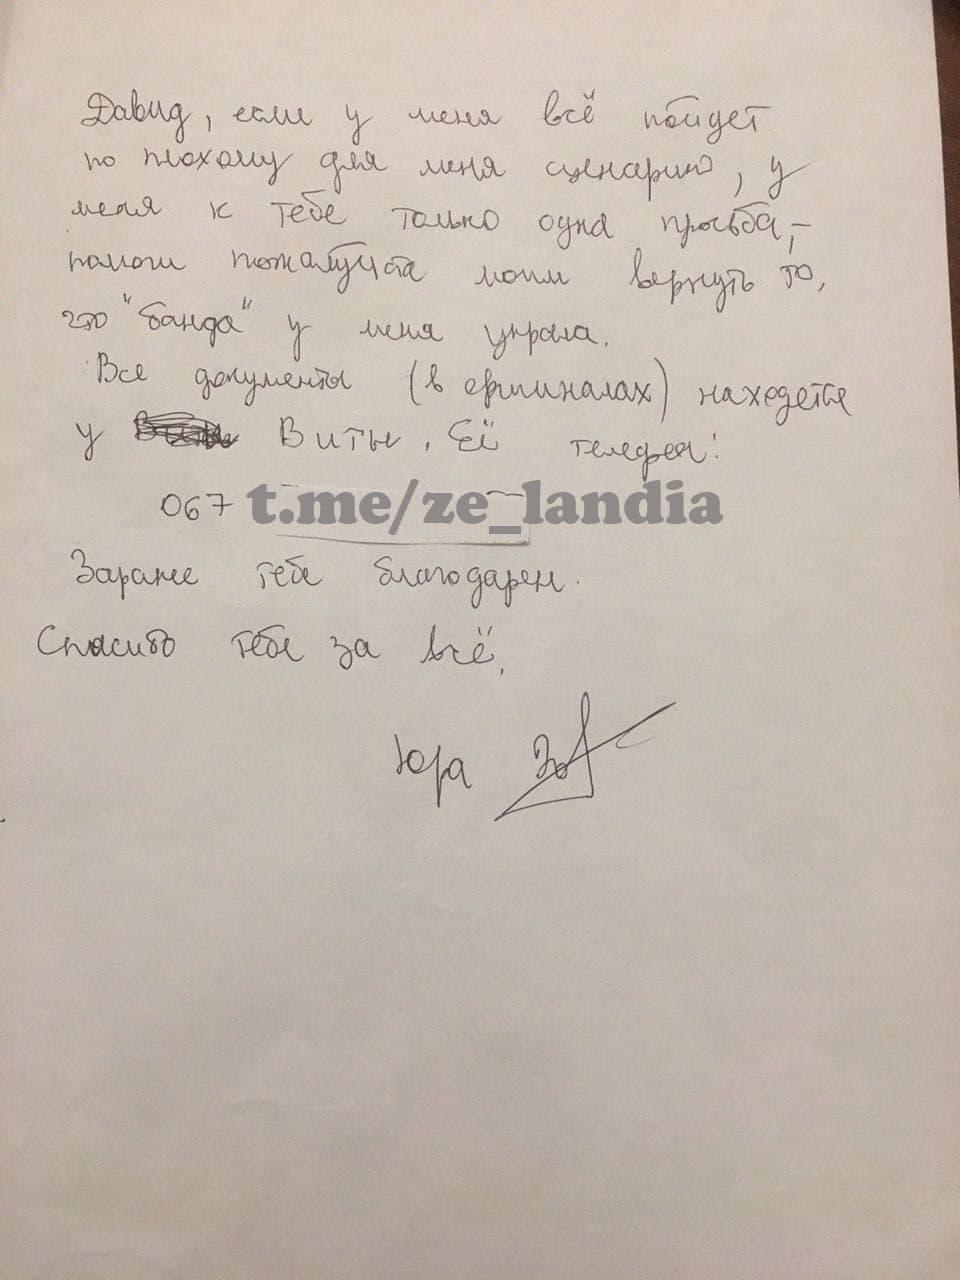 Давид, если у меня всё пойдет
по плохому для меня сценарию, у
меня к тебе только одна просьба, –
помоги пожалуйста моим вернуть то,
что "банда" у меня украла.
Все документы (в оригиналах) находеться
у Виты. Её телефон:
067 t.me/ze_landia
Заранее тебе благодарен.
Спасибо тебе за всё,
Юра